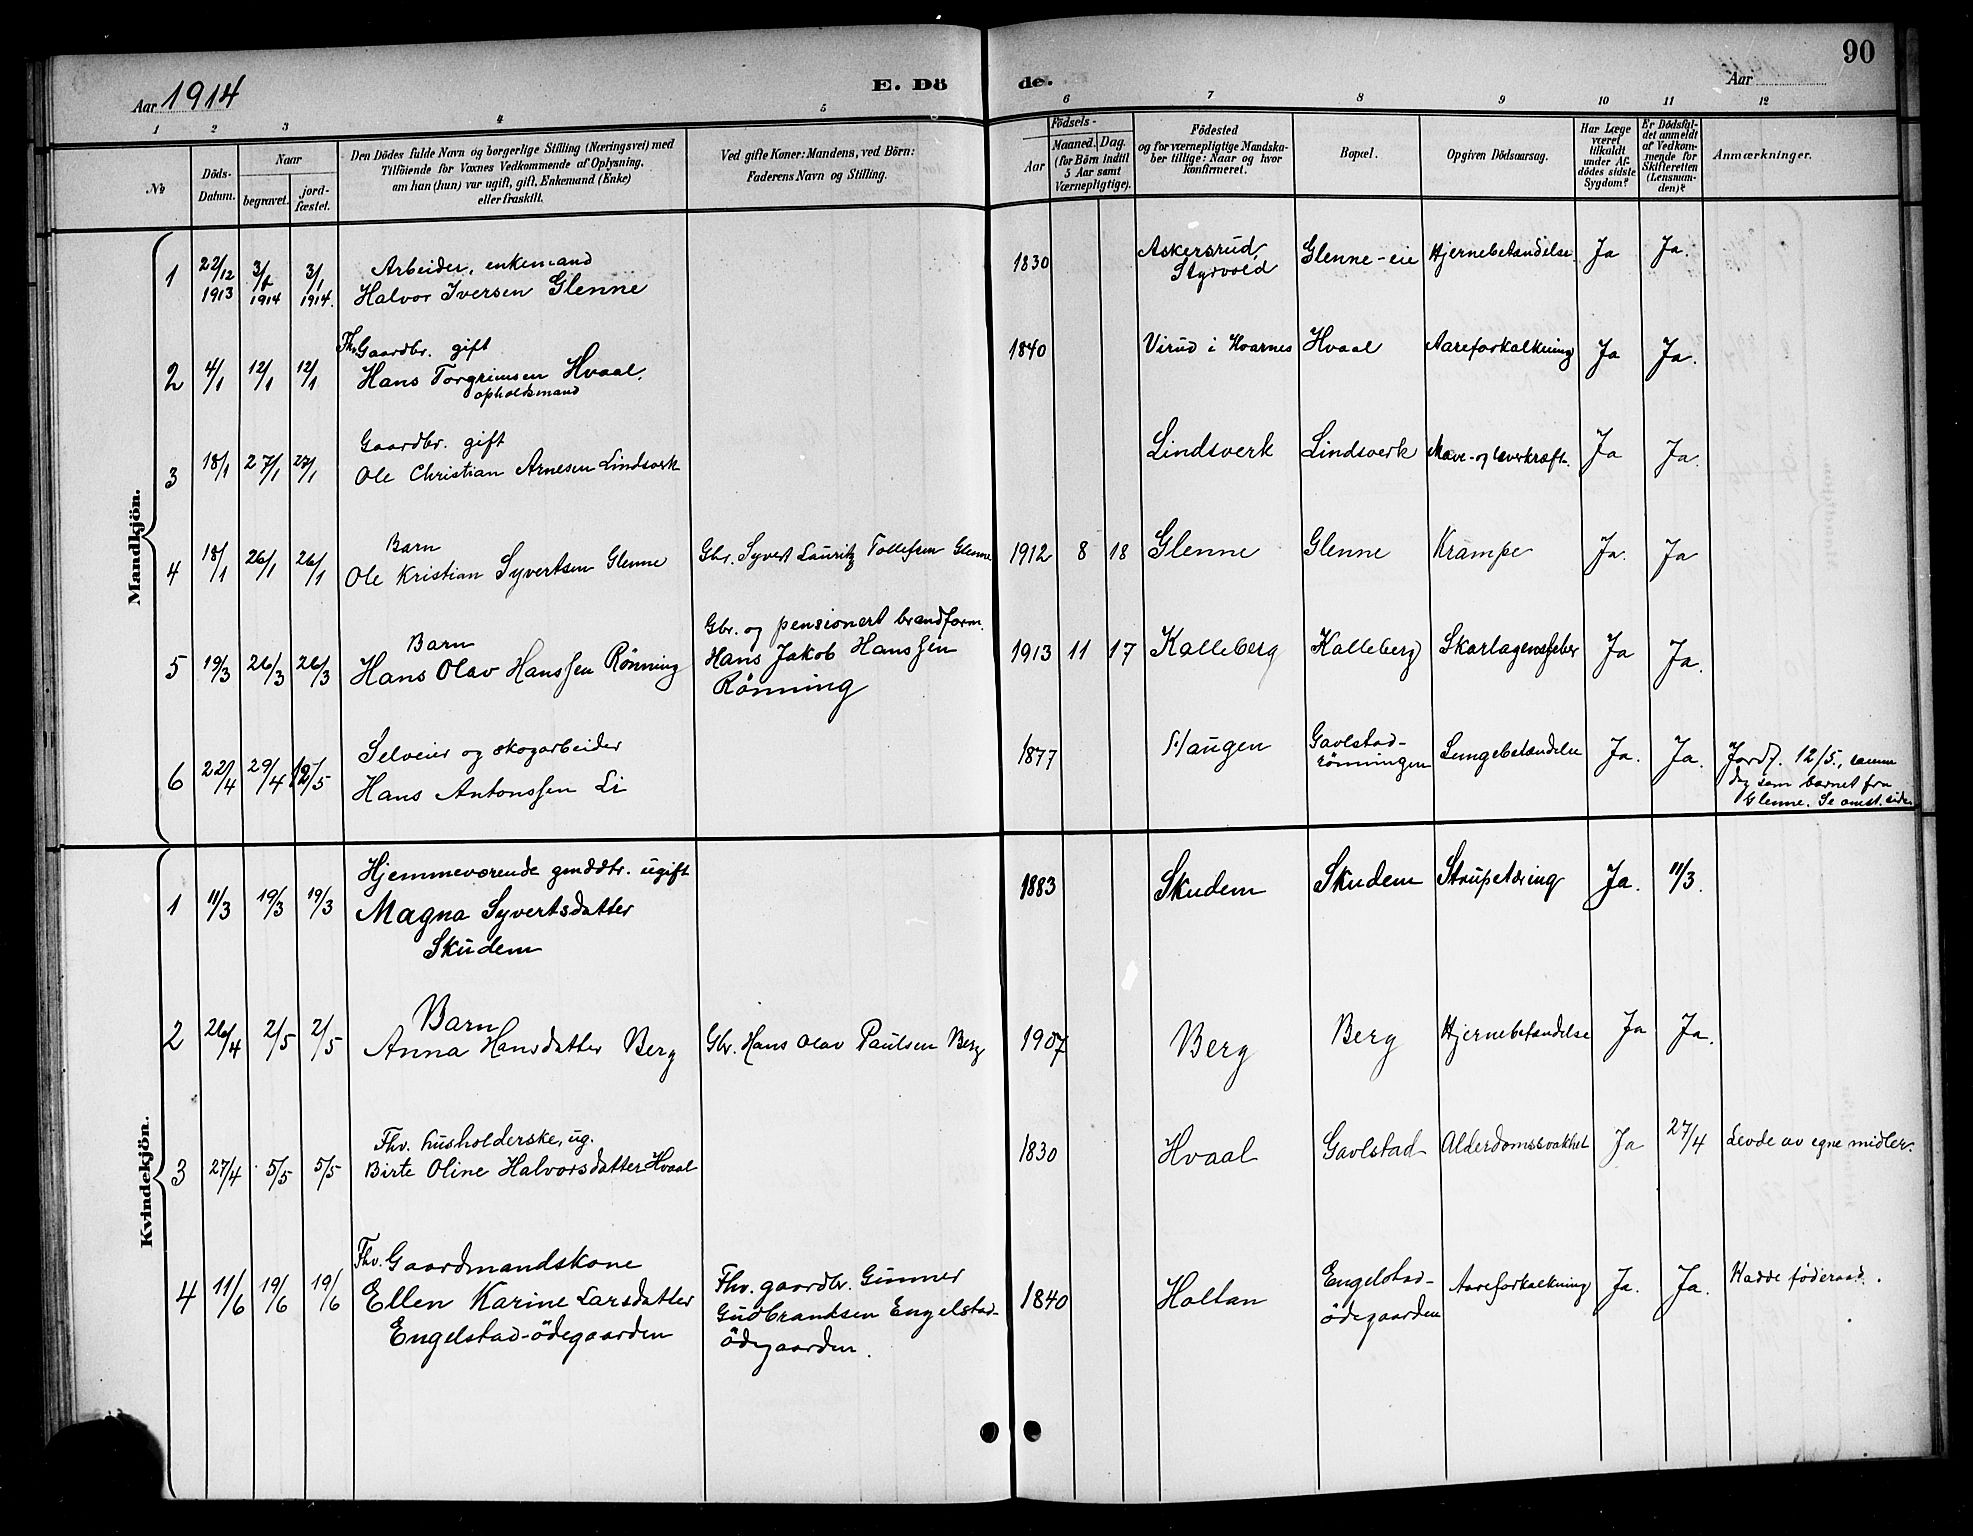 Aar 1914
E. Dö
de.
Aar
90
1 2 3 4 5 6 7 8 9 10 11 12
No
Döds-
Datum.
Naar
begravet.
jord-
fæstet.
Den Dödes fulde Navn og borgerlige Stilling (Næringsvei) med
Tilföiende for Voxnes Vedkommende af Oplysning,
om han (hun) var ugift, gift, Enkemand (Enke)
eller fraskilt.
Ved gifte Koner: Mandens, ved Börn:
Faderens Navn og Stilling.
Födsels-
Aar
Maaned. Dag.
(for Börn indtil
5 Aar samt
Værnepligtige).
Födested
og for værnepligtige Mandska-
ber tillige: Naar og hvor
konfirmeret.
Bopæl.
Opgiven Dödsaarsag.
Har Læge
været
tilkaldt
under Af-
dödes sidste
Sygdom?
Er Dödsfal-
det anmeldt
af Vedkom-
mende for
Skifteretten
(Lensman-
den)?
Anmærkninger.
Mandkjön.
1 22/12 1913 3/1 1914 3/1 1914. Arbeider, enkemand
Halvor Iversen Glenne
1830 Askersrud,
Styrvold
Glenne-eie Hjernebetændelse Ja Ja.
2 4/1 12/1 12/1 Fhv. Gaardbr. gift
Hans Torgrimsen Hvaal,
opholdsmand
1840 Virud i Hvarnes Hvaal Aareforkalkning Ja Ja.
3 18/1 27/1 27/1 Gaardbr. gift
Ole Christian Arnesen Lindsverk
Lindsverk Lindsverk Mave- og leverkræft. Ja Ja.
4 18/1 26/1 26/1 Barn
Ole Kristian Syvertsen Glenne
Gbr. Syvert Lauritz Tollefsen Glenne
1912 8 18 Glenne Glenne Krampe Ja. Ja
5 19/3 26/3 26/3 Barn
Hans Olav Hanssen Rönning
Gbr. og pensionert brandform.
Hans Jakob Hanssen
Rönning
1913 11 17 Kalleberg Kalleberg Skarlagensfeber Ja Ja.
6 22/4 29/4 12/5 Selveier og skogarbeider
Hans Antonssen Li
1877 Haugen Gavlstad-
rönningen
Lungebetændelse Ja. Ja. Jordf. 12/5, samme
dag som barnet fra
Glenne. Se omst. side
Kvindekjön.
1 11/3 19/3 19/3 Hjemmeværende gmddtr. ugift
Magna Syvertsdatter
Skudem
1883 Skudem Skudem Strupetæring Ja. 11/3.
2 26/4 2/5 2/5 Barn
Anna Hansdatter Berg
Gbr. Hans Olav Paulsen Berg
1907 Berg Berg Hjernebetændelse Ja Ja.
3 27/4 5/5 5/5 Fhv. husholderske, ug.
Birte Oline Halvorsdatter Hvaal
1830 Hvaal Gavlstad Alderdomssvakhet Ja 27/4 Levde av egne midler.
4 11/6 19/6 19/6 Fhv. Gaardmandskone
Ellen Karine Larsdatter
Engelstad-ödegaarden
Fhv. gaardbr. Gunner
Gudbrandsen Engelstad-
ödegaarden.
1840 Holtan Engelstad-
ödegaarden
Aareforkalkning Ja. Ja. Hadde föderaad.